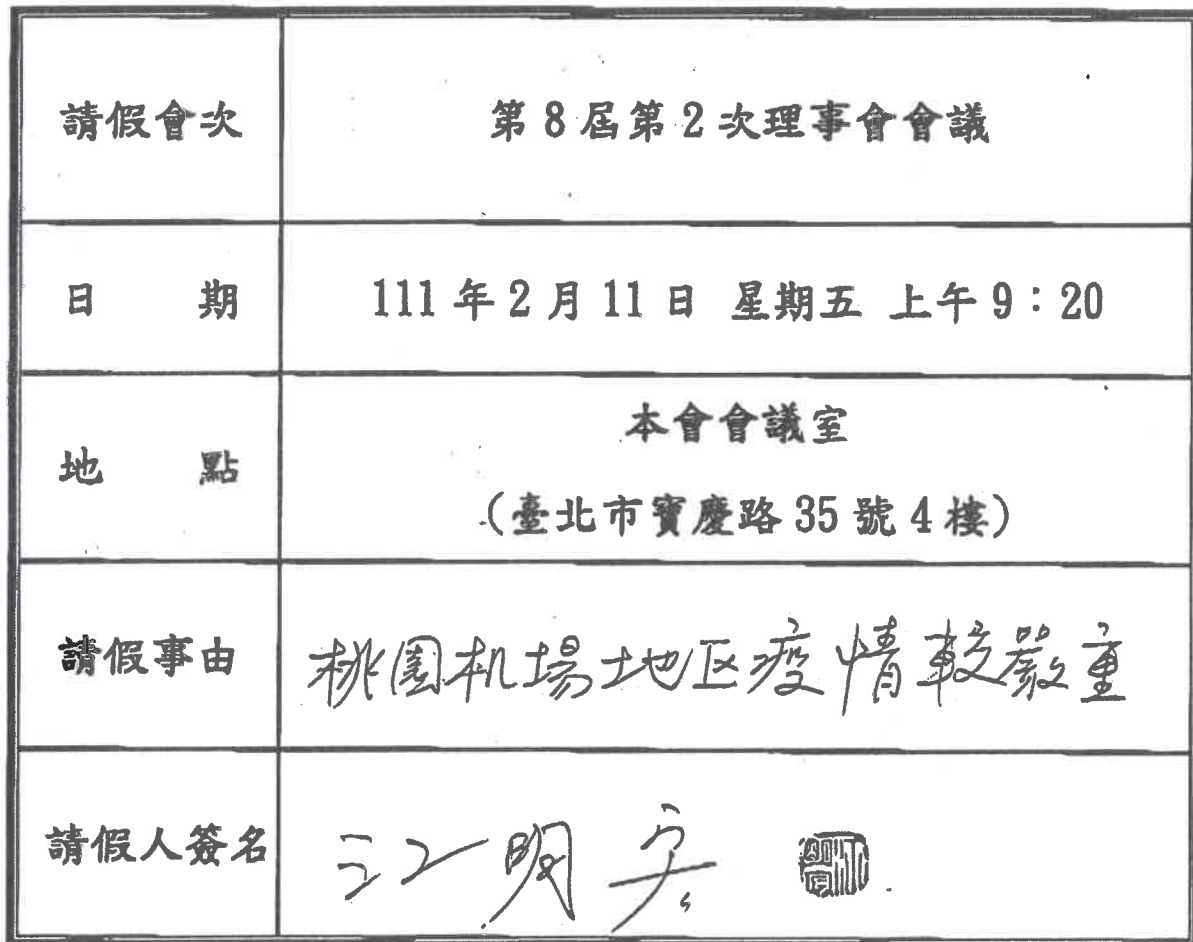 請假會次 第8屆第2次理事會會議
日 期 111年2月11日 星期五 上午9:20
地 點 本會會議室
(臺北市寶慶路35號4樓)
請假事由 桃園机場地区疫情較嚴重
請假人簽名 江明